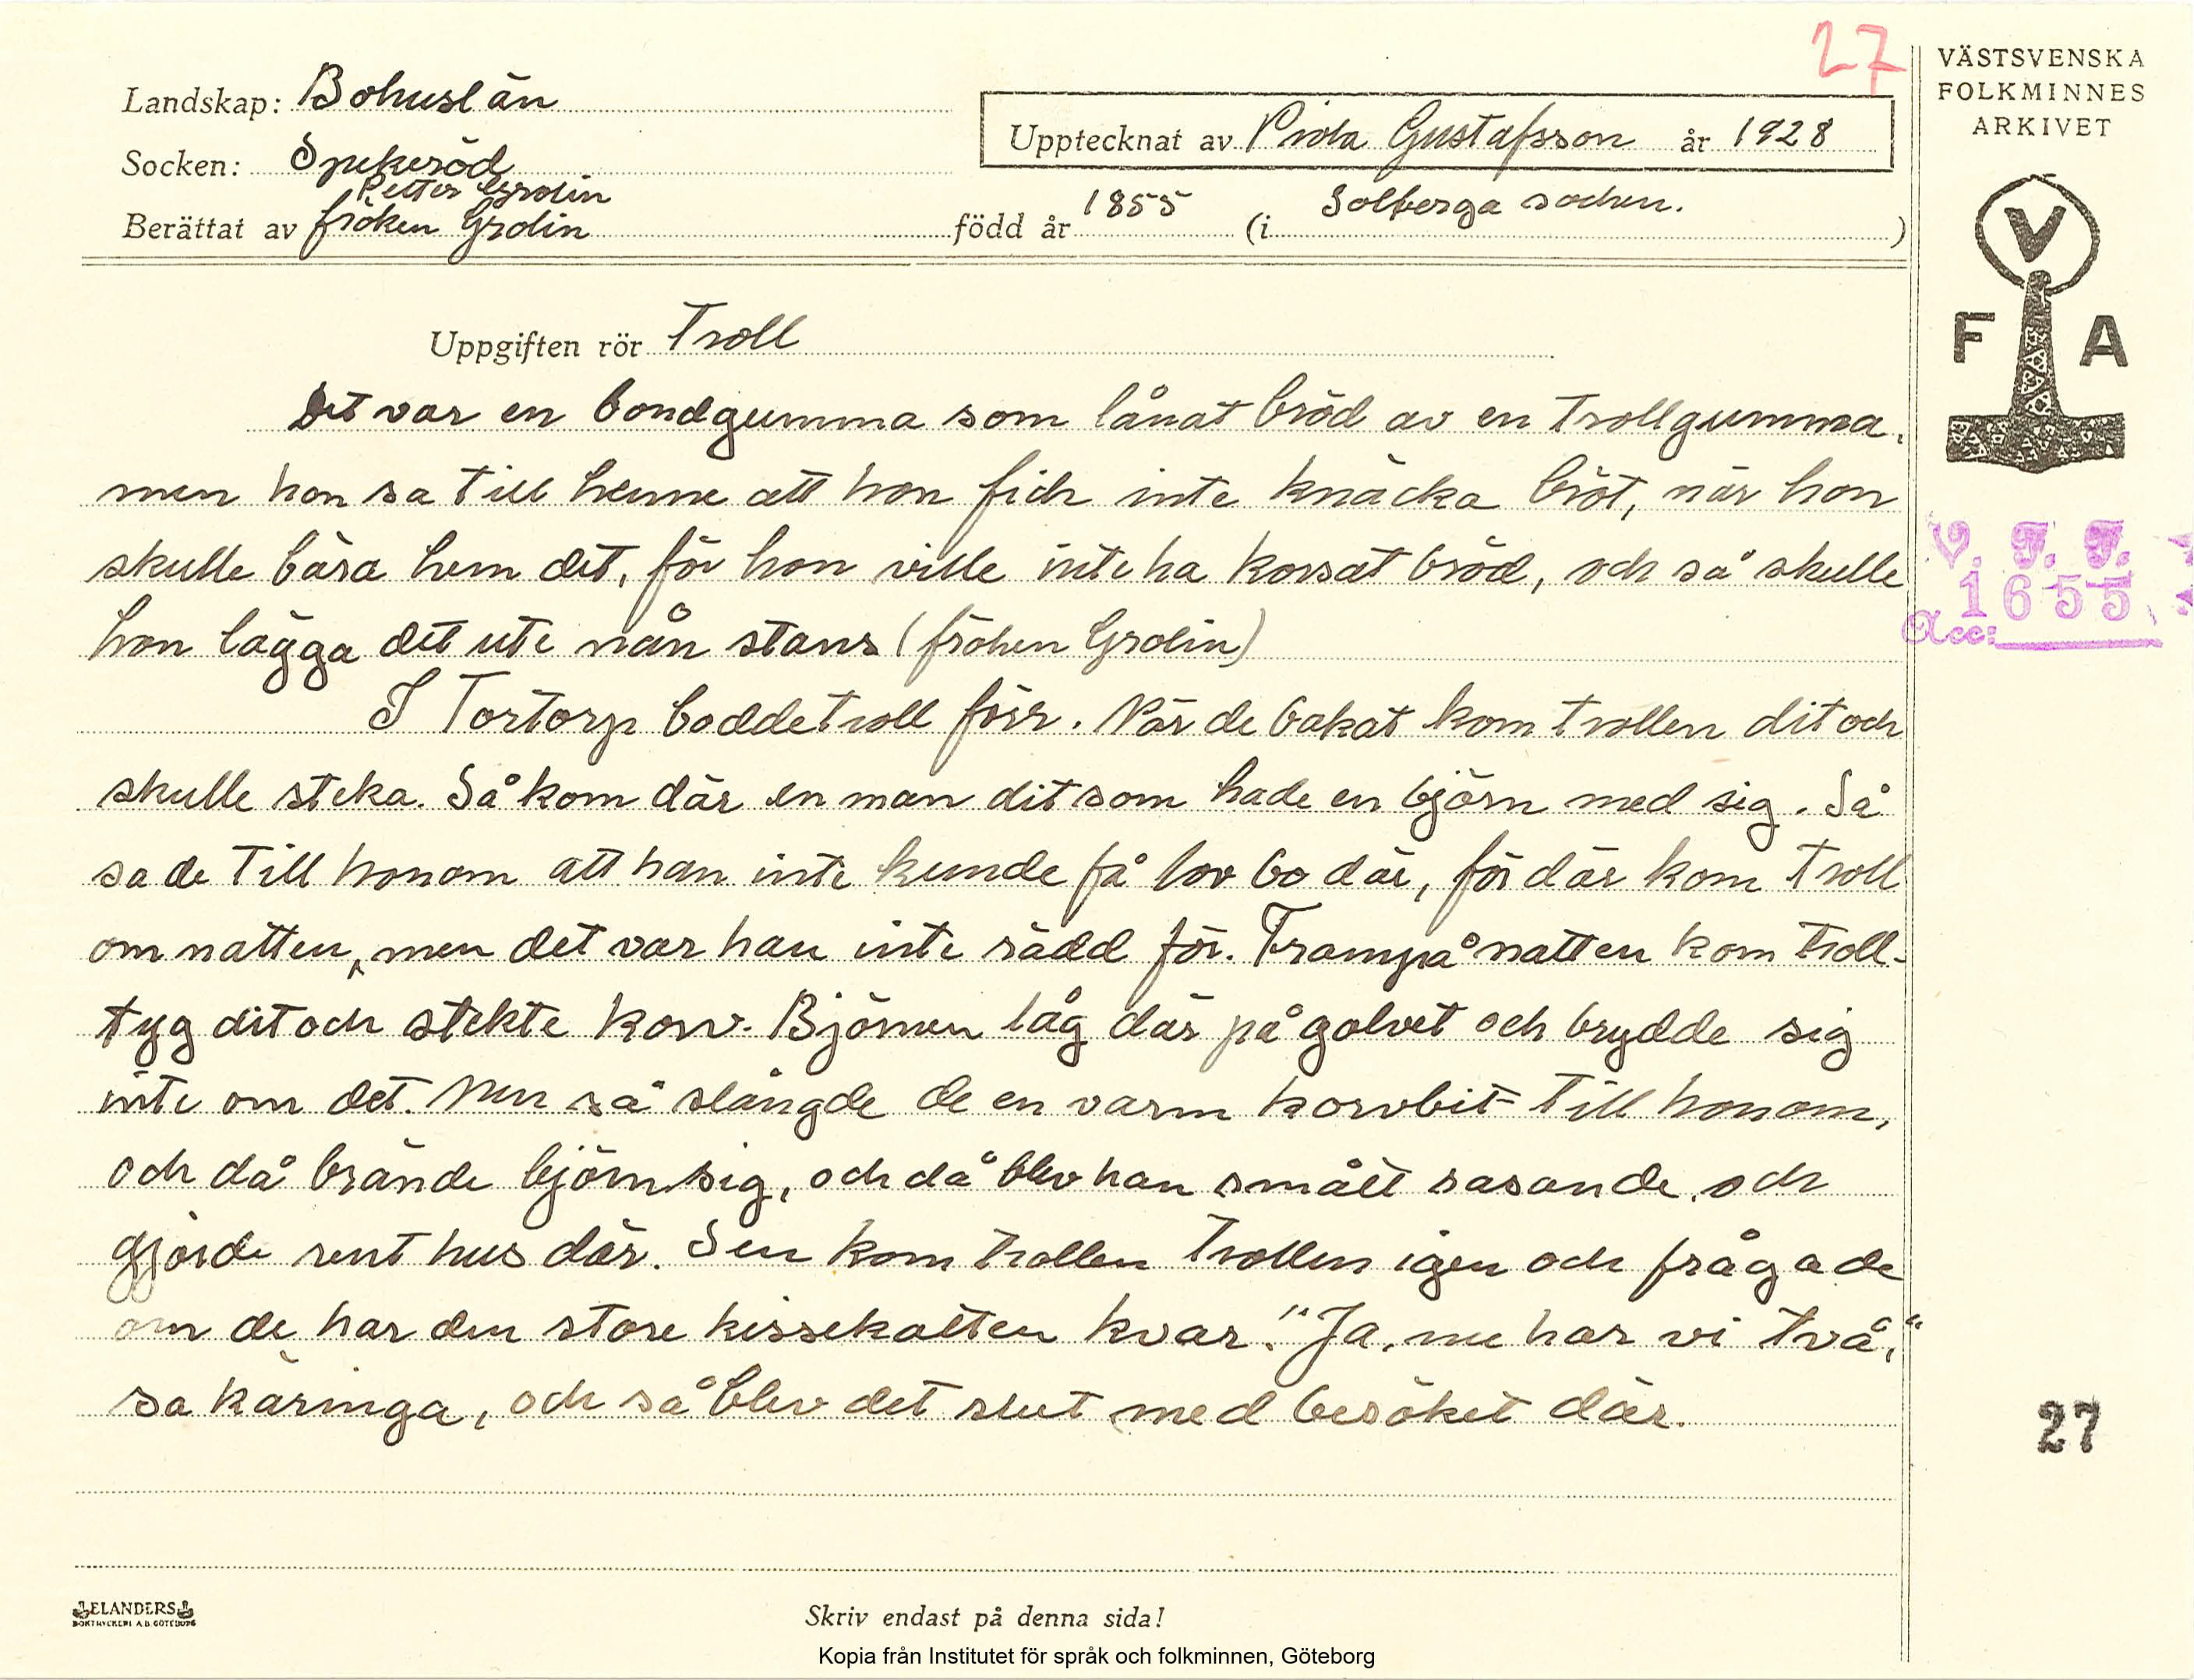 27
VÄSTSVENSKA
FOLKMINNES
ARKIVET
Landskap: Bohuslän
Upptecknat av Viola Gustafsson år 1928
Socken: Spekeröd
Petter Grolin
Berättat av fröken Grolin född år 1855 (i Solberga socken.)
V
F A
Uppgiften rör Troll
Det var en bondgumma som lånat bröd av en trollgumma,
men hon sa till henne att hon fick inte knäcka bröt, när hon
skulle bära hem det, för hon ville inte ha korsat bröd, och så skulle
hon lägga det ute nån stans (fröken Grolin)
V. F. F.
1655
Acc:
I Tortorp bodde troll förr. När de bakat kom trollen dit och
skulle steka. Så kom där en man dit som hade en björn med sig. Så
sa de till honom att han inte kunde få lov bo där, för där kom troll
om natten, men det var han inte rädd för. Frampå natten kom troll-
tyg dit och stekte korv. Björnen låg där på golvet och brydde sig
inte om det. Men så slängde de en varm korvbit till honom,
och då brände björn sig, och då blev han smått rasande och
gjorde rent hus där. Sen kom trollen trollen igen och frågade
om de har den store kissekatten kvar. "Ja, nu har vi två,"
sa käringa, och så blev det slut med besöket där.
27
ELANDERS
BOKTRYCKERI A.B. GÖTEBORG
Skriv endast på denna sida!
Kopia från Institutet för språk och folkminnen, Göteborg